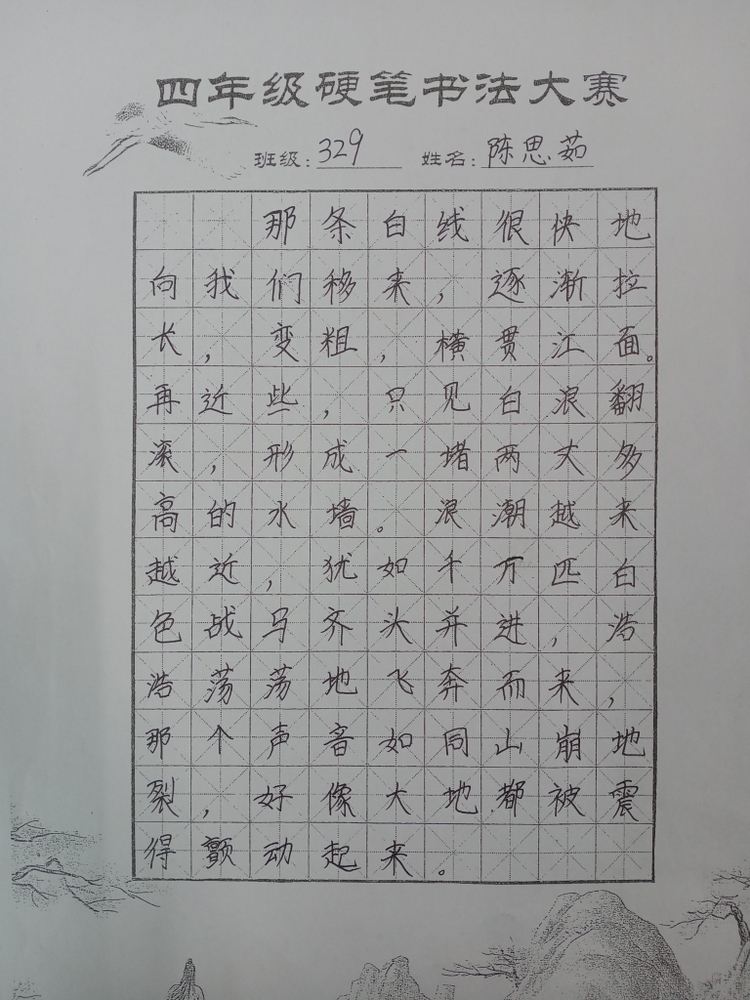 四年级硬笔书法大赛
班级：329 姓名：陈思茹
那条白线很快地
向我们移来，逐渐拉
长，变粗，横贯江面。
再近些，只见白浪翻
滚，形成一堵两丈多
高的水墙。浪潮越来
越近，犹如千万匹白
色战马齐头并进，浩
浩荡荡地飞奔而来，
那个声音如同山崩地
裂，好像大地都被震
得颤动起来。